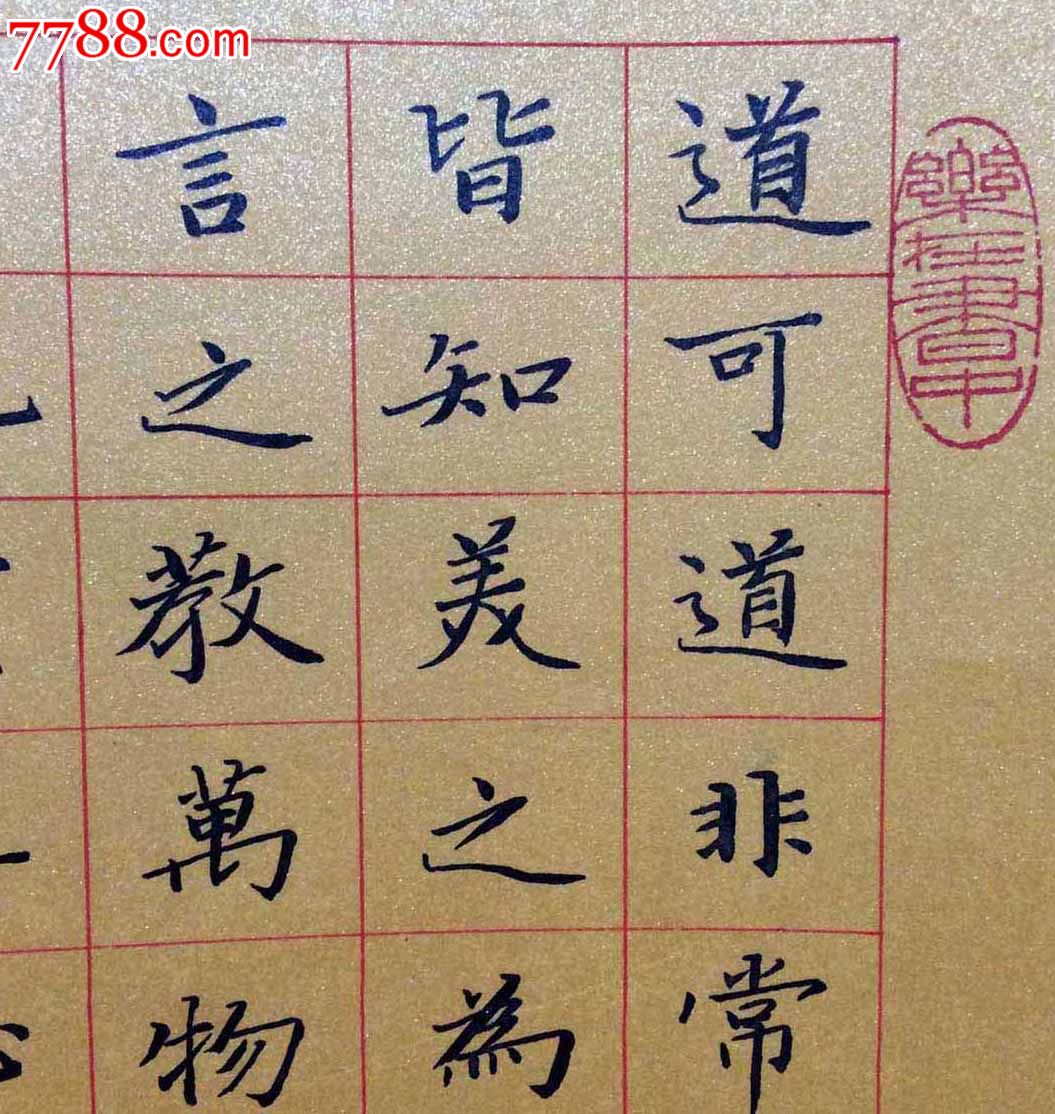 7788.com
樂在書中
道可道非常
皆知美之為
言之教萬物